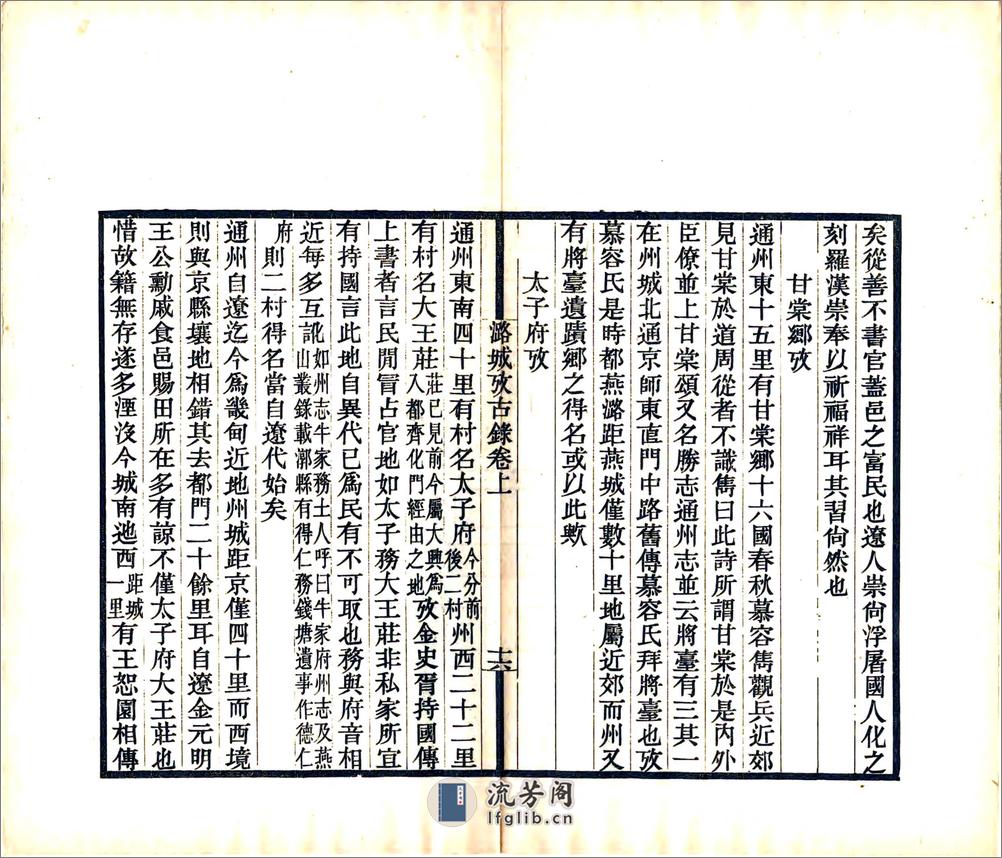 矣從善不書官蓋邑之富民也遼人崇尙浮屠國人化之
刻羅漢崇奉以祈福祥耳其習尙然也
甘棠鄉攷
通州東十五里有甘棠鄉十六國春秋慕容雋觀兵近郊
見甘棠於道周從者不識雋曰此詩所謂甘棠於是內外
臣僚並上甘棠頌又名勝志通州志並云將臺有三其一
在州城北通京師東直門中路舊傳慕容氏拜將臺也攷
慕容氏是時都燕潞距燕城僅數十里地屬近郊而州又
有將臺遺蹟鄉之得名或以此歟
太子府攷
潞城攷古錄卷上 十六
通州東南四十里有村名太子府今分前後二村州西二十二里
有村名大王莊莊已見前今屬大興爲入都齊化門經由之地攷金史胥持國傳
上書者言民閒冒占官地如太子務大王莊非私家所宜
有持國言此地自異代已爲民有不可取也務與府音相
近每多互訛如州志牛家務土人呼曰牛家府州志及燕山叢錄載漷縣有得仁務錢塘遺事作德仁
府則二村得名當自遼代始矣
通州自遼迄今爲畿甸近地州城距京僅四十里而西境
則與京縣壤地相錯其去都門二十餘里耳自遼金元明
王公勳戚食邑賜田所在多有諒不僅太子府大王莊也
惜故籍無存遂多湮沒今城南迤西距城一里有王恕園相傳
流芳阁
lfglib.cn